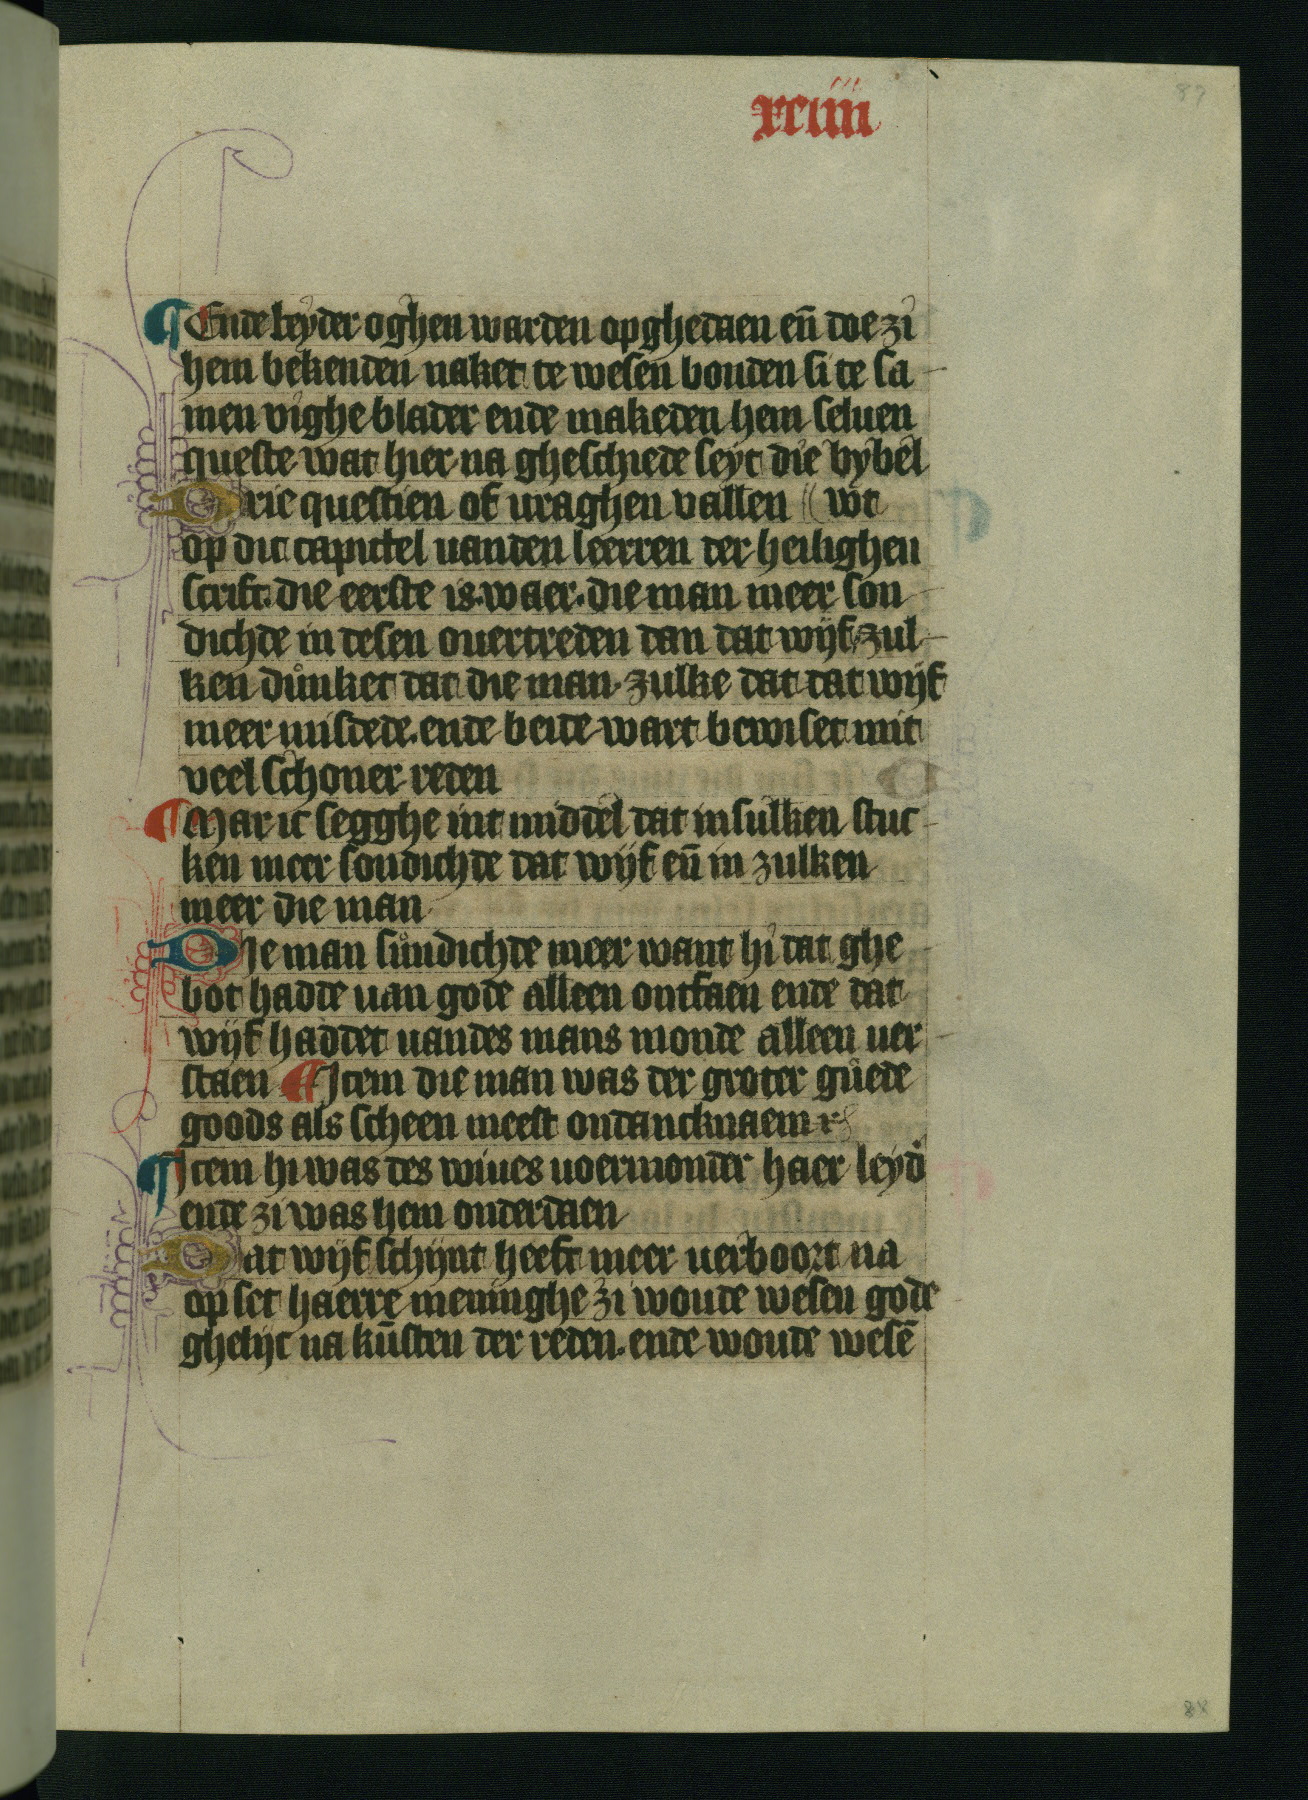 xciiii
87
¶ Ende beyder oghen warden opghedaen en̄ doe zi
hem bekenden naket te wesen bonden si te sa
men vighe blader ende makeden hem seluen
queste wat hier na gheschiede seyt die bybel
Drie questien of uraghen vallen wt
op dit capittel uanden leerren der heilighen
scrift. die eerste is. waer. die man meer son
dichde in desen ouertreden dan dat wijf. zul
ken důnket dat die man. zulke dat dat wijf
meer misdede. ende beide wart bewiset mit
veel schoner reden
¶ Mar ic segghe int middel dat in sulken stuc
ken meer sondichde dat wijf en̄ in zulken
meer die man
Die man sůndichde meer want hi dat ghe
bot hadde uan gode alleen ontfaen ende dat
wijf haddet uandes mans monde alleen uer
staen ¶ Item die man was der groter gůede
goods als scheen meest ondancknaemr
¶ Item hi was des wiues uoermonder haer leyd'
ende zi was hem onderdaen
Dat wijf schijnt heeft meer uerboort na
op set haerre meninghe zi woude wesen gode
ghelijc na kūsten der reden. ende woude wesē